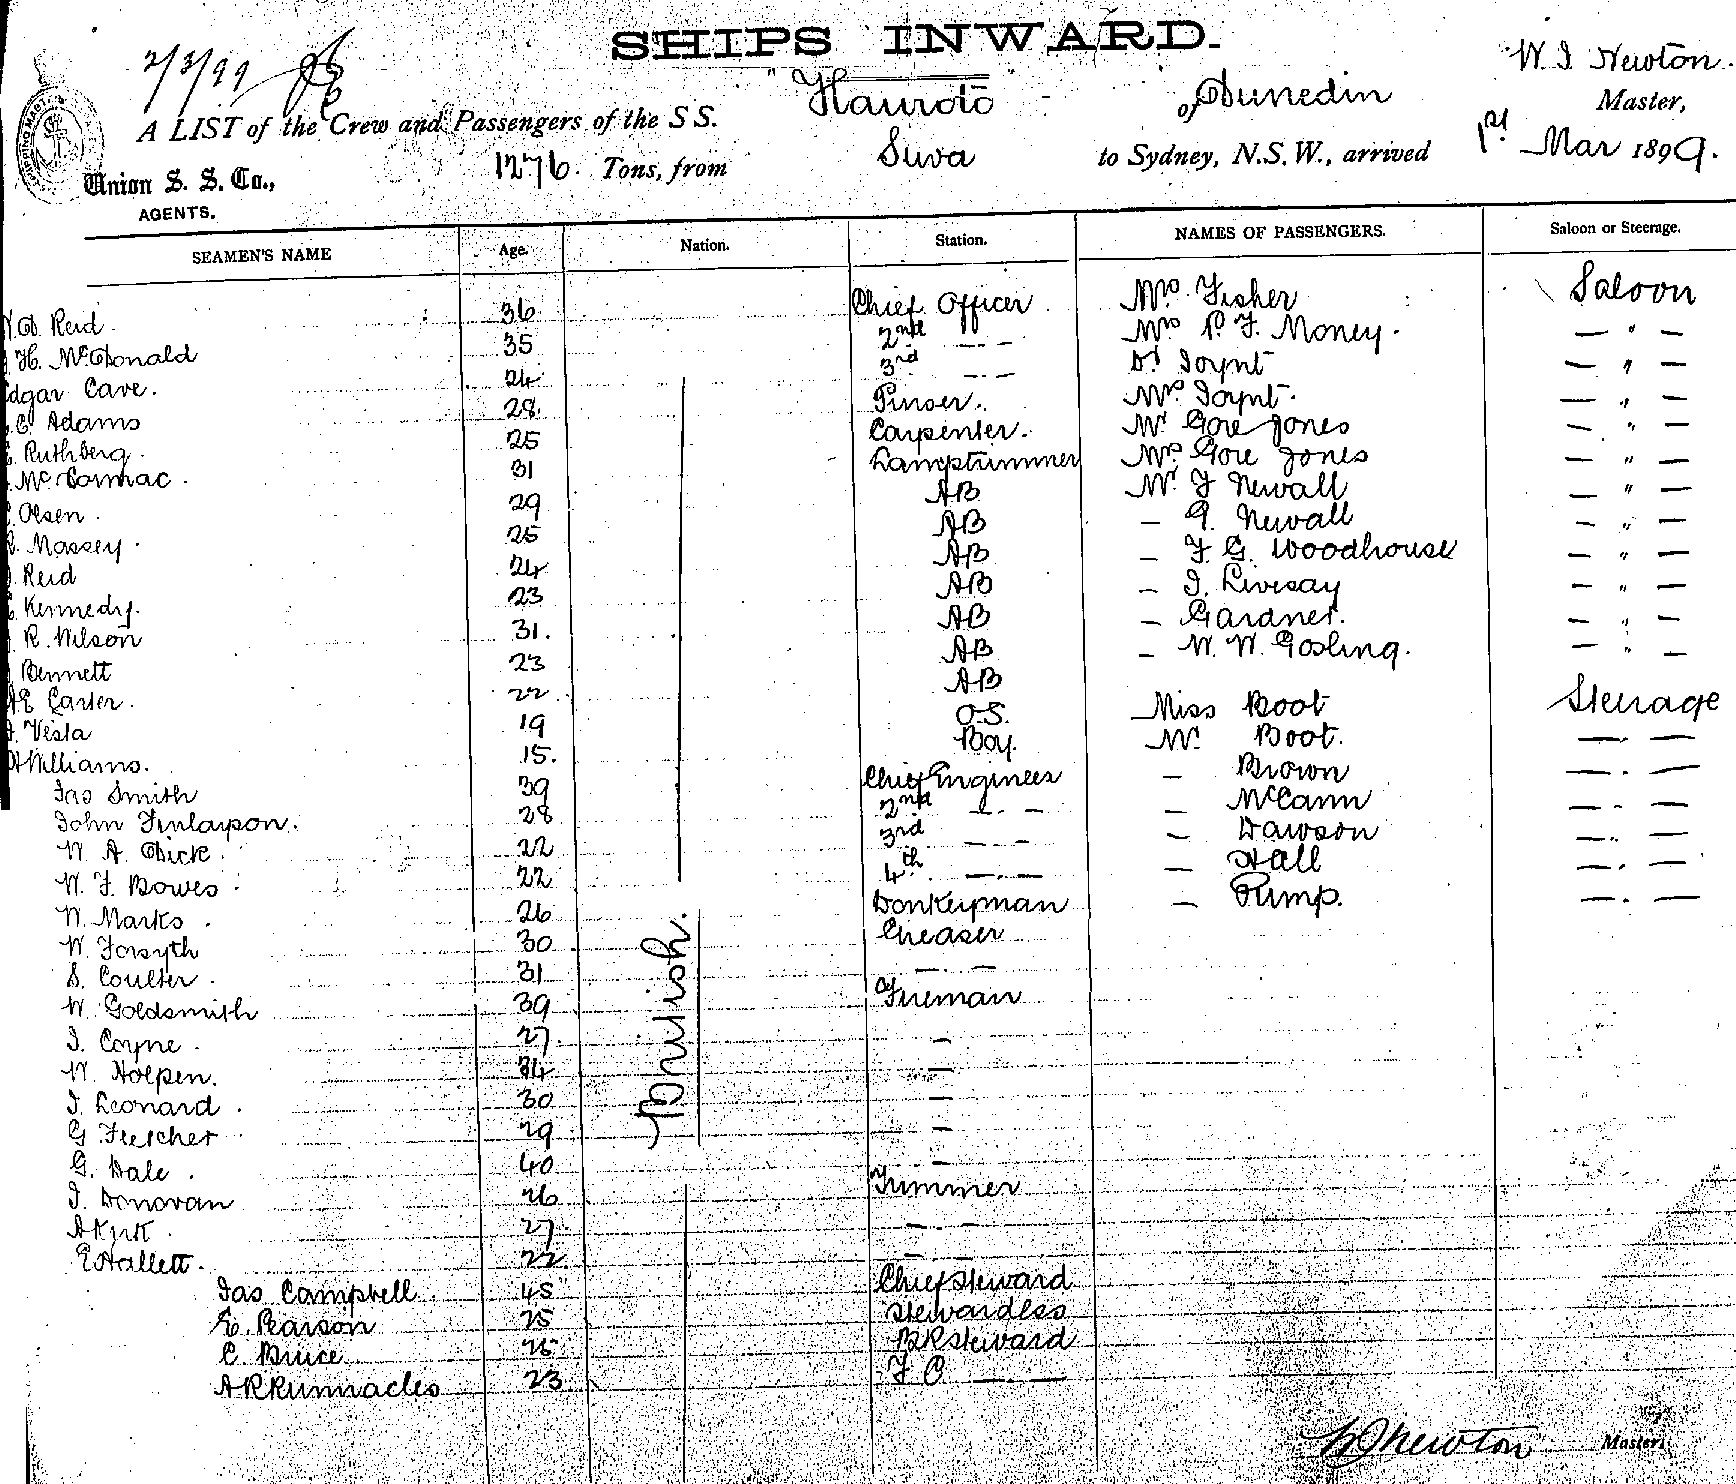 SHIPS INWARD.
2/3/99
W. J. Newton
A LIST of the Crew and Passengers of the S S. "Hauroto" of Dunedin Master,
1276. Tons, from Suva to Sydney, N.S.W., arrived 1st Mar 1899.
Union S. S. Co.,
AGENTS.
SEAMEN'S NAME Age. Nation. Station. NAMES OF PASSENGERS. Saloon or Steerage.
Reid. 36 Chief Officer Mrs. Fisher Saloon
H. McDonald 35 2nd — Mrs P. F. Money. — " —
Edgar Cave. 24 3rd — Dr Joynt — " —
Adams 28. Purser. Mrs Joynt. — " —
Ruthberg. 25 Carpenter. Mr Gore Jones — " —
McCormac. 31 Lamptrimmer Mrs Gore Jones — " —
Olsen. 29 AB Mr J Newall — " —
Massey. 25 AB — G. Newall — " —
Reid 24 AB — F. G. Woodhouse — " —
Kennedy. 23 AB — J. Livesay — " —
R. Wilson 31. AB — Gardner. — " —
Bennett 23 AB — W. W. Gosling. — " —
Carter. 22 AB Miss Boot Steerage
Vesta 19 O.S. Mr Boot. — . —
Williams. 15. Boy. — Brown — . —
Jas Smith 39 Chief Engineer — McCann — . —
John Finlayson. 28 2nd — . — — Dawson — . —
W. A. Dick. 22 3rd — . — — Hall — . —
W. F. Bowes 22 4th — . — — Pump. — . —
W. Marks. 26 Donkeyman
W. Forsyth 30 Greaser
S. Coulter. 31 — . —
W. Goldsmith 39 British. Fireman
J. Coyne. 27 —
W. Holpen. 34 —
J. Leonard. 30 —
G Fletcher 29 —
G. Dale. 40 —
J. Donovan 26 Trimmer
A Kirk. 27 — . —
E Hallett. 22 — —
Jas Campbell 45 Chief Steward
E. Pearson 25 Stewardess
C. Bruce 25 BR Steward
A R Runnacles 23 F C — —
W J Newton Master.